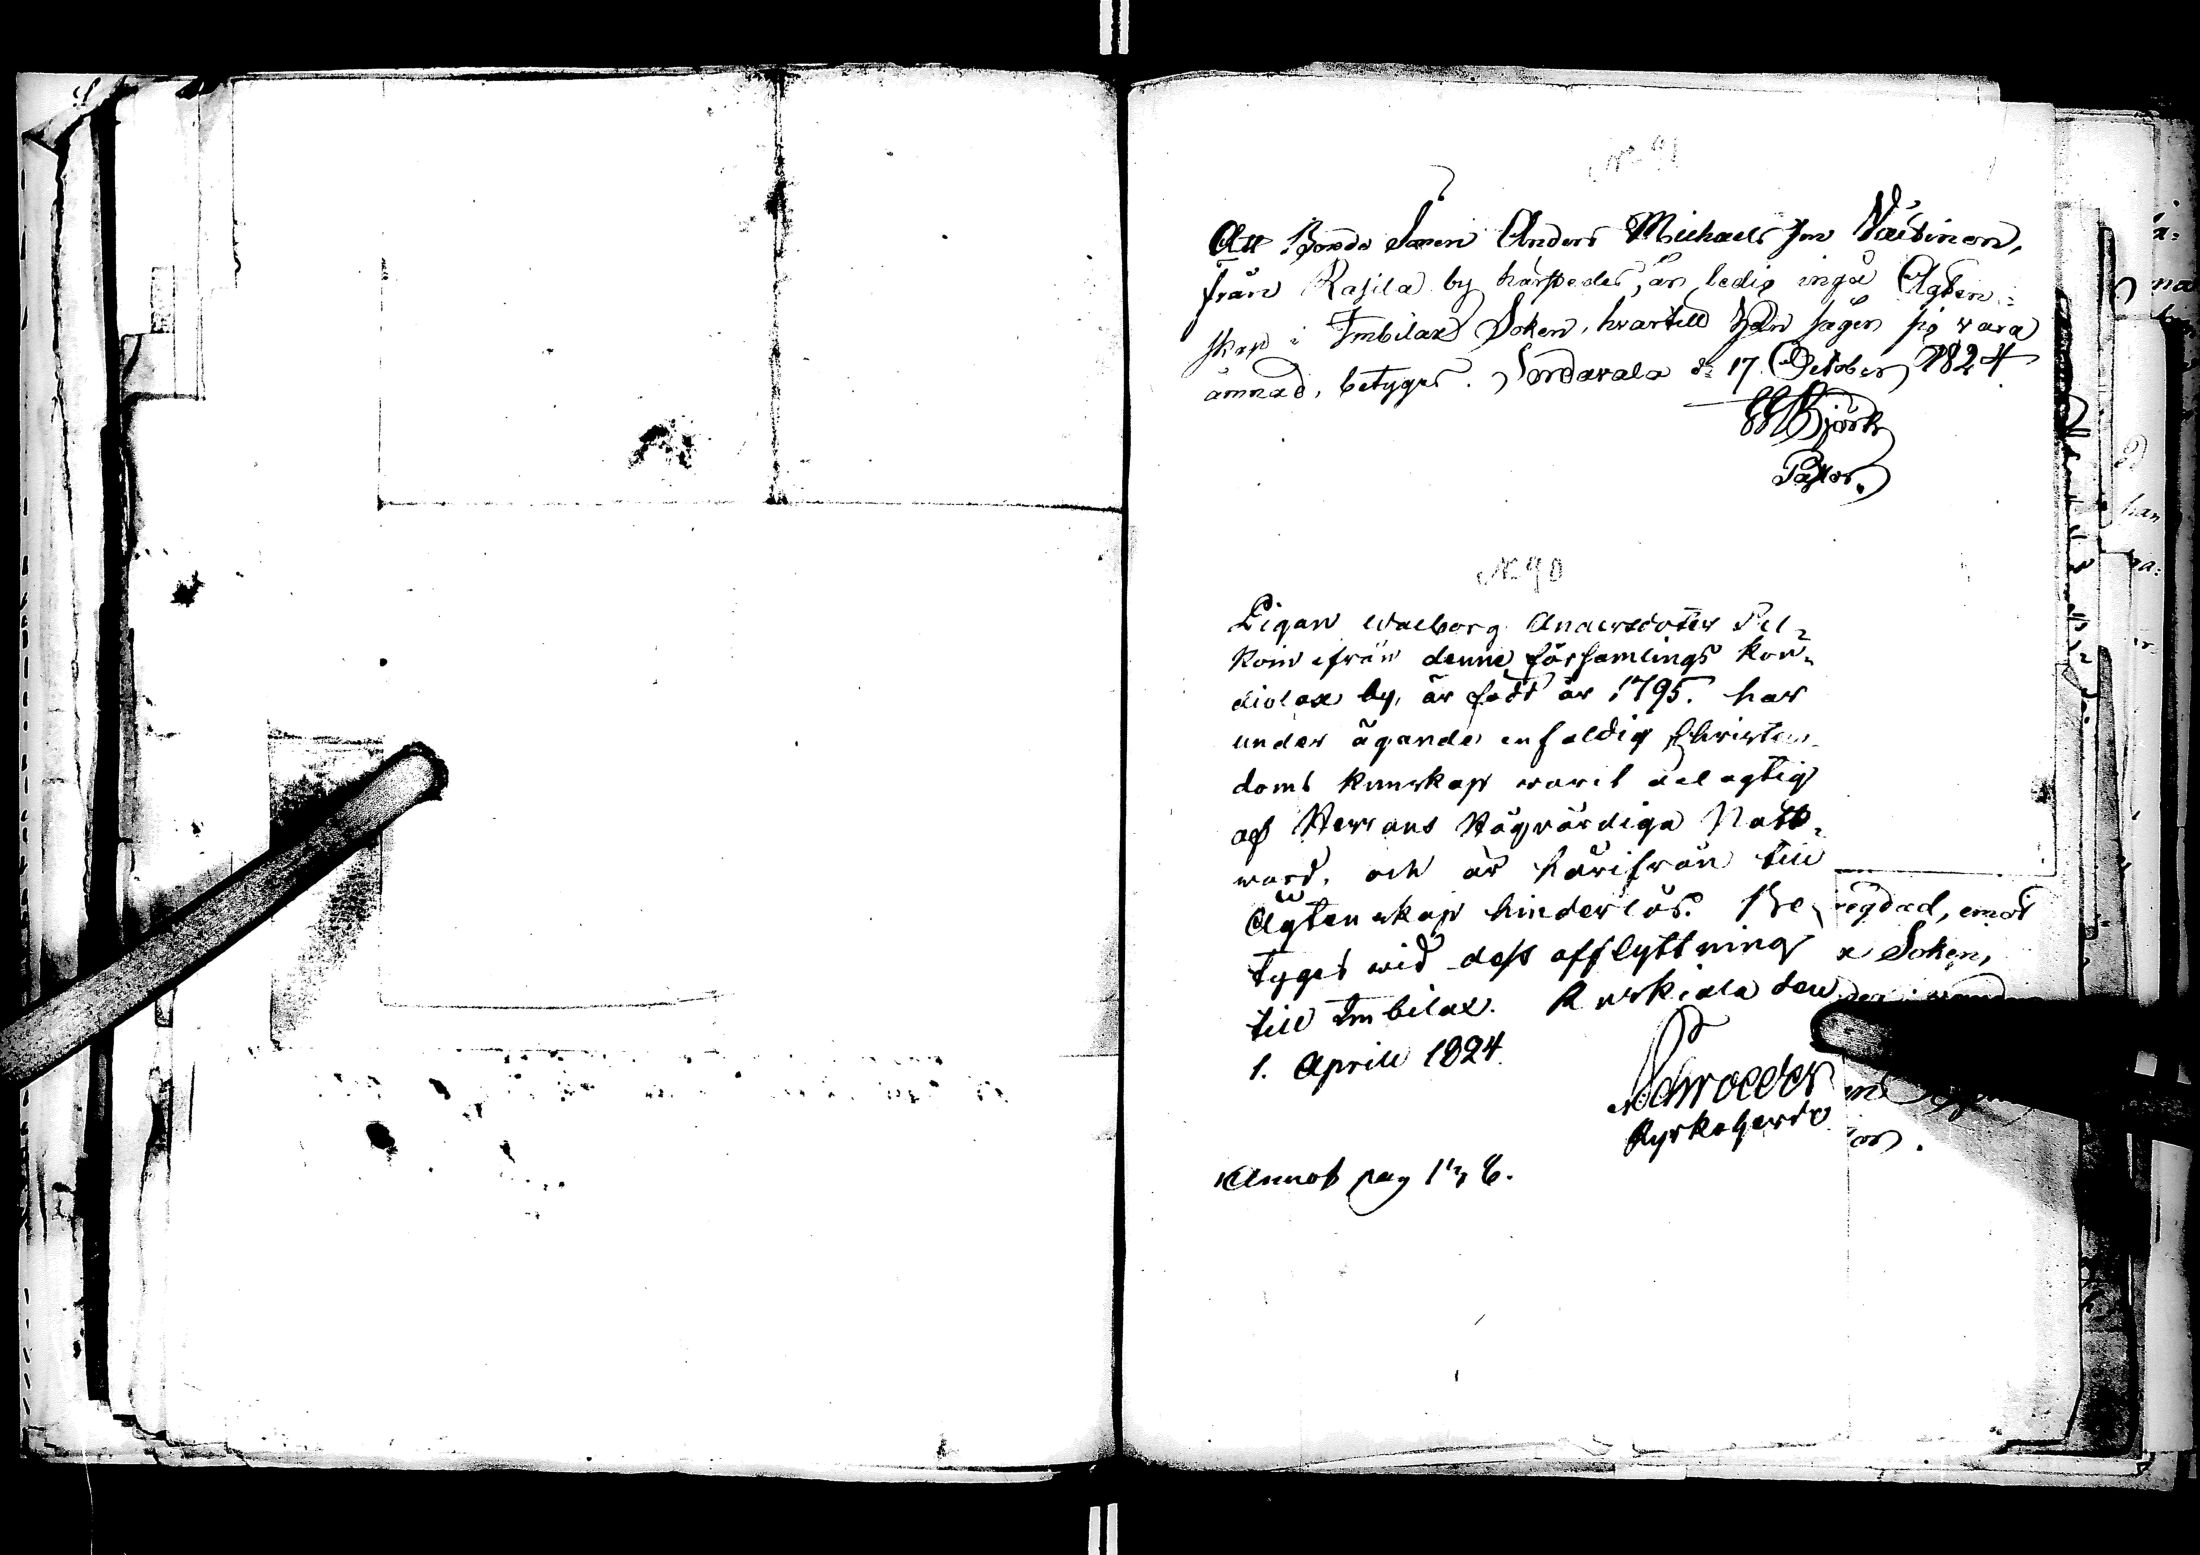 No 91
Att Bonde Sonen Anders Michaels Son Väisinen,
från Rasila by härstedes, är ledig ingå Ägten-
skap i Imbilax Soken, hvartill han säger sig vara
ämnad, betygas. Sordavala d. 17 October 1824
Björk
Pastor.
No 90
Pigan Walborg Andersdoter Pel-
koin ifrån denne församlings Kon-
diolax by, är född år 1795. har
under ägande enfaldig Christen-
doms kunskap warit delagtig
af Herrans Högvärdiga Natt-
ward, och är härifrån till
Ägtenskap hinderlös. Be-
tygas wid dess afflyttning
till Imbilax. Ruskiala den
1. Aprill 1824.
Schroeder
Kyrkoherde
Annot pag 176.
ägdad, emot
x Soken,